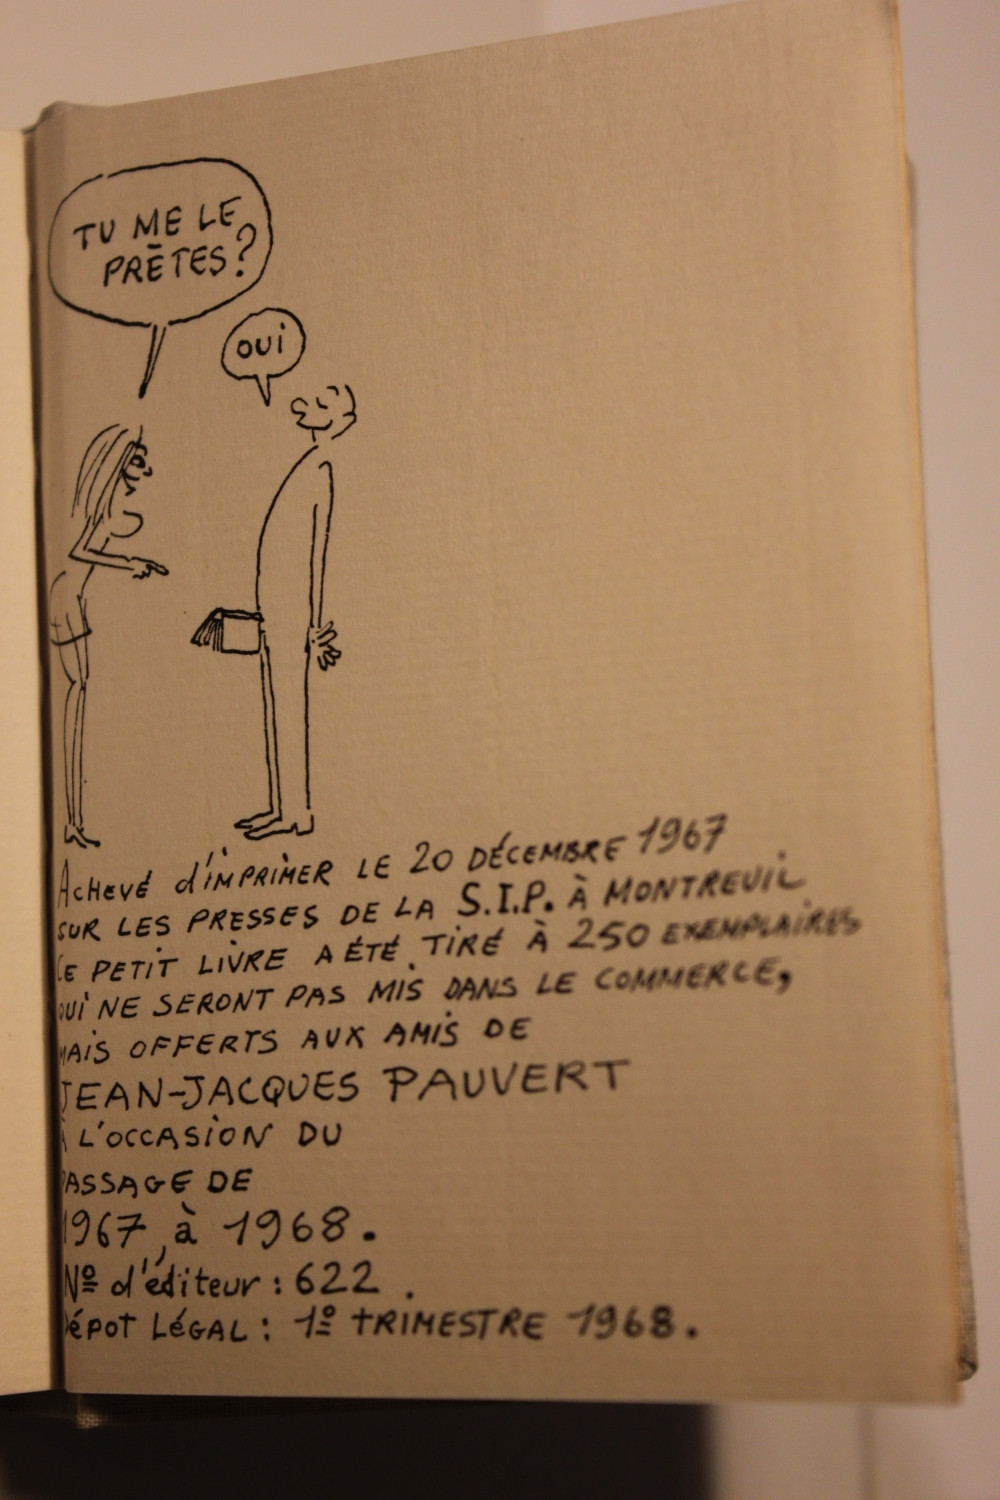 TU ME LE
PRÊTES?
OUI
ACHEVÉ D'IMPRIMER LE 20 DÉCEMBRE 1967
SUR LES PRESSES DE LA S.I.P. À MONTREUIL
CE PETIT LIVRE A ÉTÉ TIRÉ À 250 EXEMPLAIRES
QUI NE SERONT PAS MIS DANS LE COMMERCE,
MAIS OFFERTS AUX AMIS DE
JEAN-JACQUES PAUVERT
À L'OCCASION DU
PASSAGE DE
1967 à 1968.
Nº d'éditeur : 622.
Dépot LéGAL : 1º TRIMESTRE 1968.